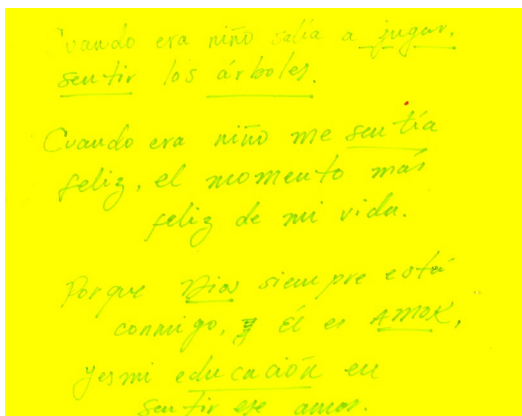 Cuando era niño salía a jugar,
sentir los árboles.
Cuando era niño me sentía
feliz, el momento más
feliz de mi vida.
Porque Dios siempre está
conmigo, y Él es AMOR,
y es mi educación en
sentir ese amor.